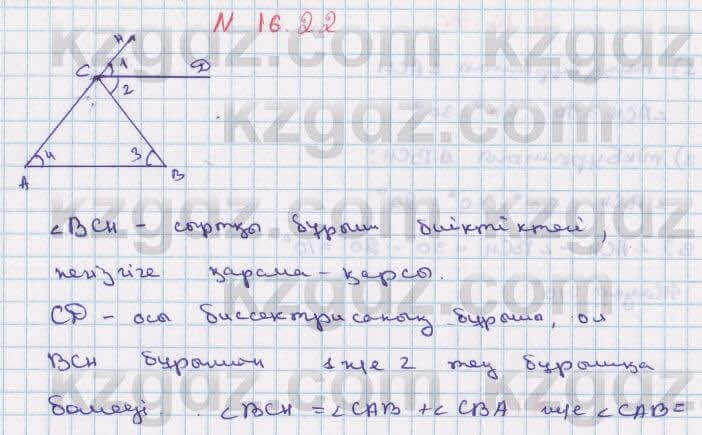 N 16.22
H
C 1 D
2
4 3
A B
∠BCH - сыртқы бұрыш биіктіктегі,
негізгіге қарама-қарсы.
CD - осы биссектрисаның бұрышы, ол
BCH бұрышын 1 және 2 тең бұрышқа
бөледі. ∠BCH = ∠CAB + ∠CBA және ∠CAB =
kzgdz.com
kzgdz.com
kzgdz.com
kzgdz.com
kzgdz.com